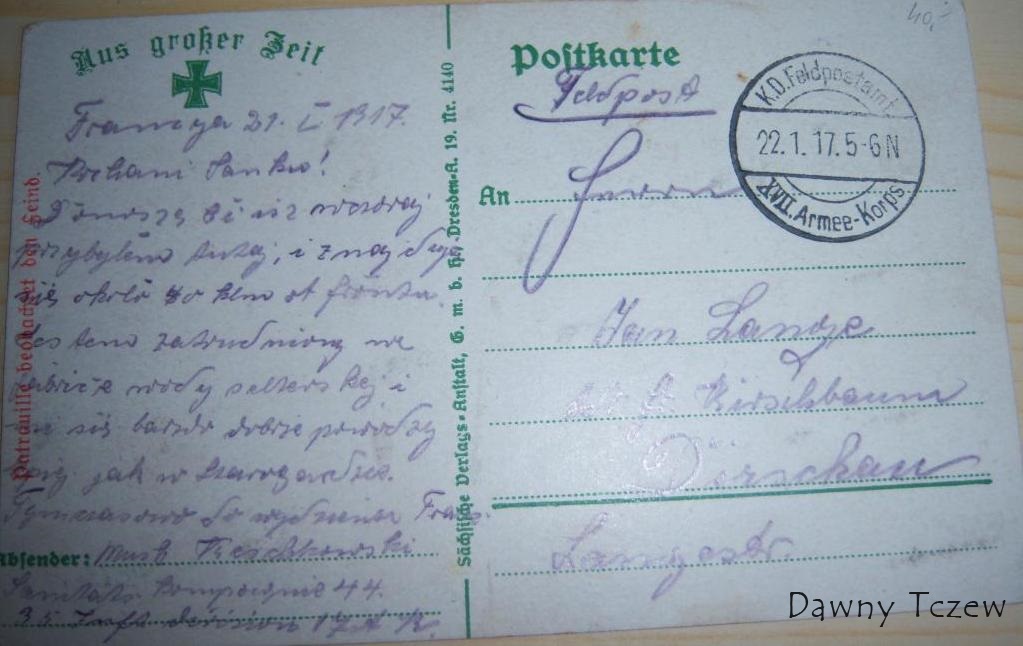 Aus großer Zeit
Francya 21. I 1917.
Kochani Janku!
Donoszę Ci iż wczoraj
przybyłem tutaj, i znajduje
się około 30 klm od frontu.
Jestem zatrudniony we
fabrice wody selterskej i
mi się bardzo dobrze powodzy
jak w Starogardzie.
Tymczasowo do widzenia Franz.
Absender: Musk Reschkowski
Sanitäts Kompagnie 44.
35 Inft division 17 A K.
Patrouille beobachtet den Feind.
Sächsische Verlags-Anstalt, G. m. b. H., Dresden-A. 19. Nr. 4140
40,-
Postkarte
Feldpost
K.D.Feldpostamt
22.1.17.5-6N
XVII. Armee-Korps
An Herrn
Jan Lange
Kirschbaum
Dirschau
Langestr.
Dawny Tczew